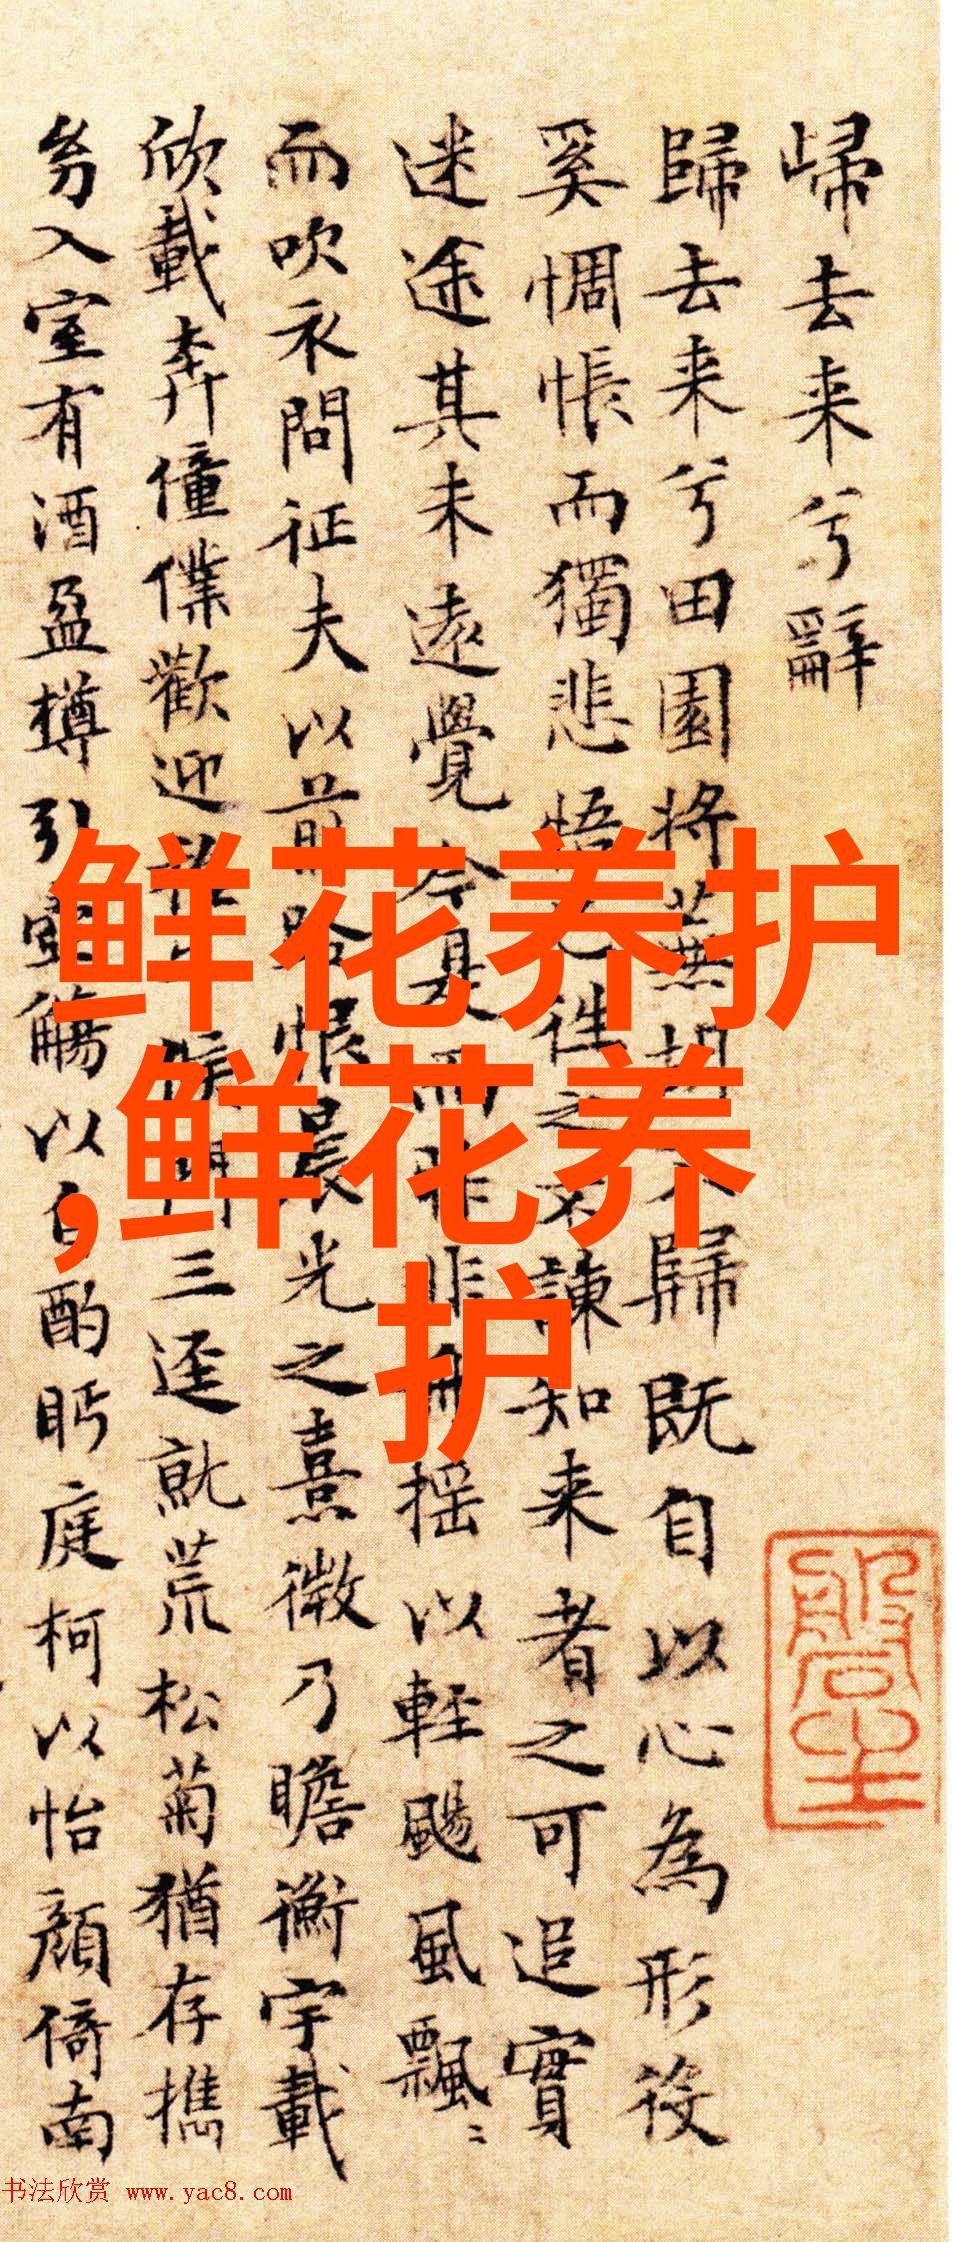 歸去来兮辭
歸去来兮田園将蕪胡不歸既自以心為形役
奚惆悵而獨悲悟已往之不諫知来者之可追實
迷途其未遠覺今是而昨非舟摇以輕颺風飄〻
而吹衣問征夫以前路恨晨光之熹微乃瞻衡宇載
欣載奔僮僕歡迎稚子候門三逕就荒松菊猶存攜
幼入室有酒盈樽引壺觴以自酌眄庭柯以怡顔倚南
鲜花养护
,鲜花养
护
书法欣赏 www.yac8.com